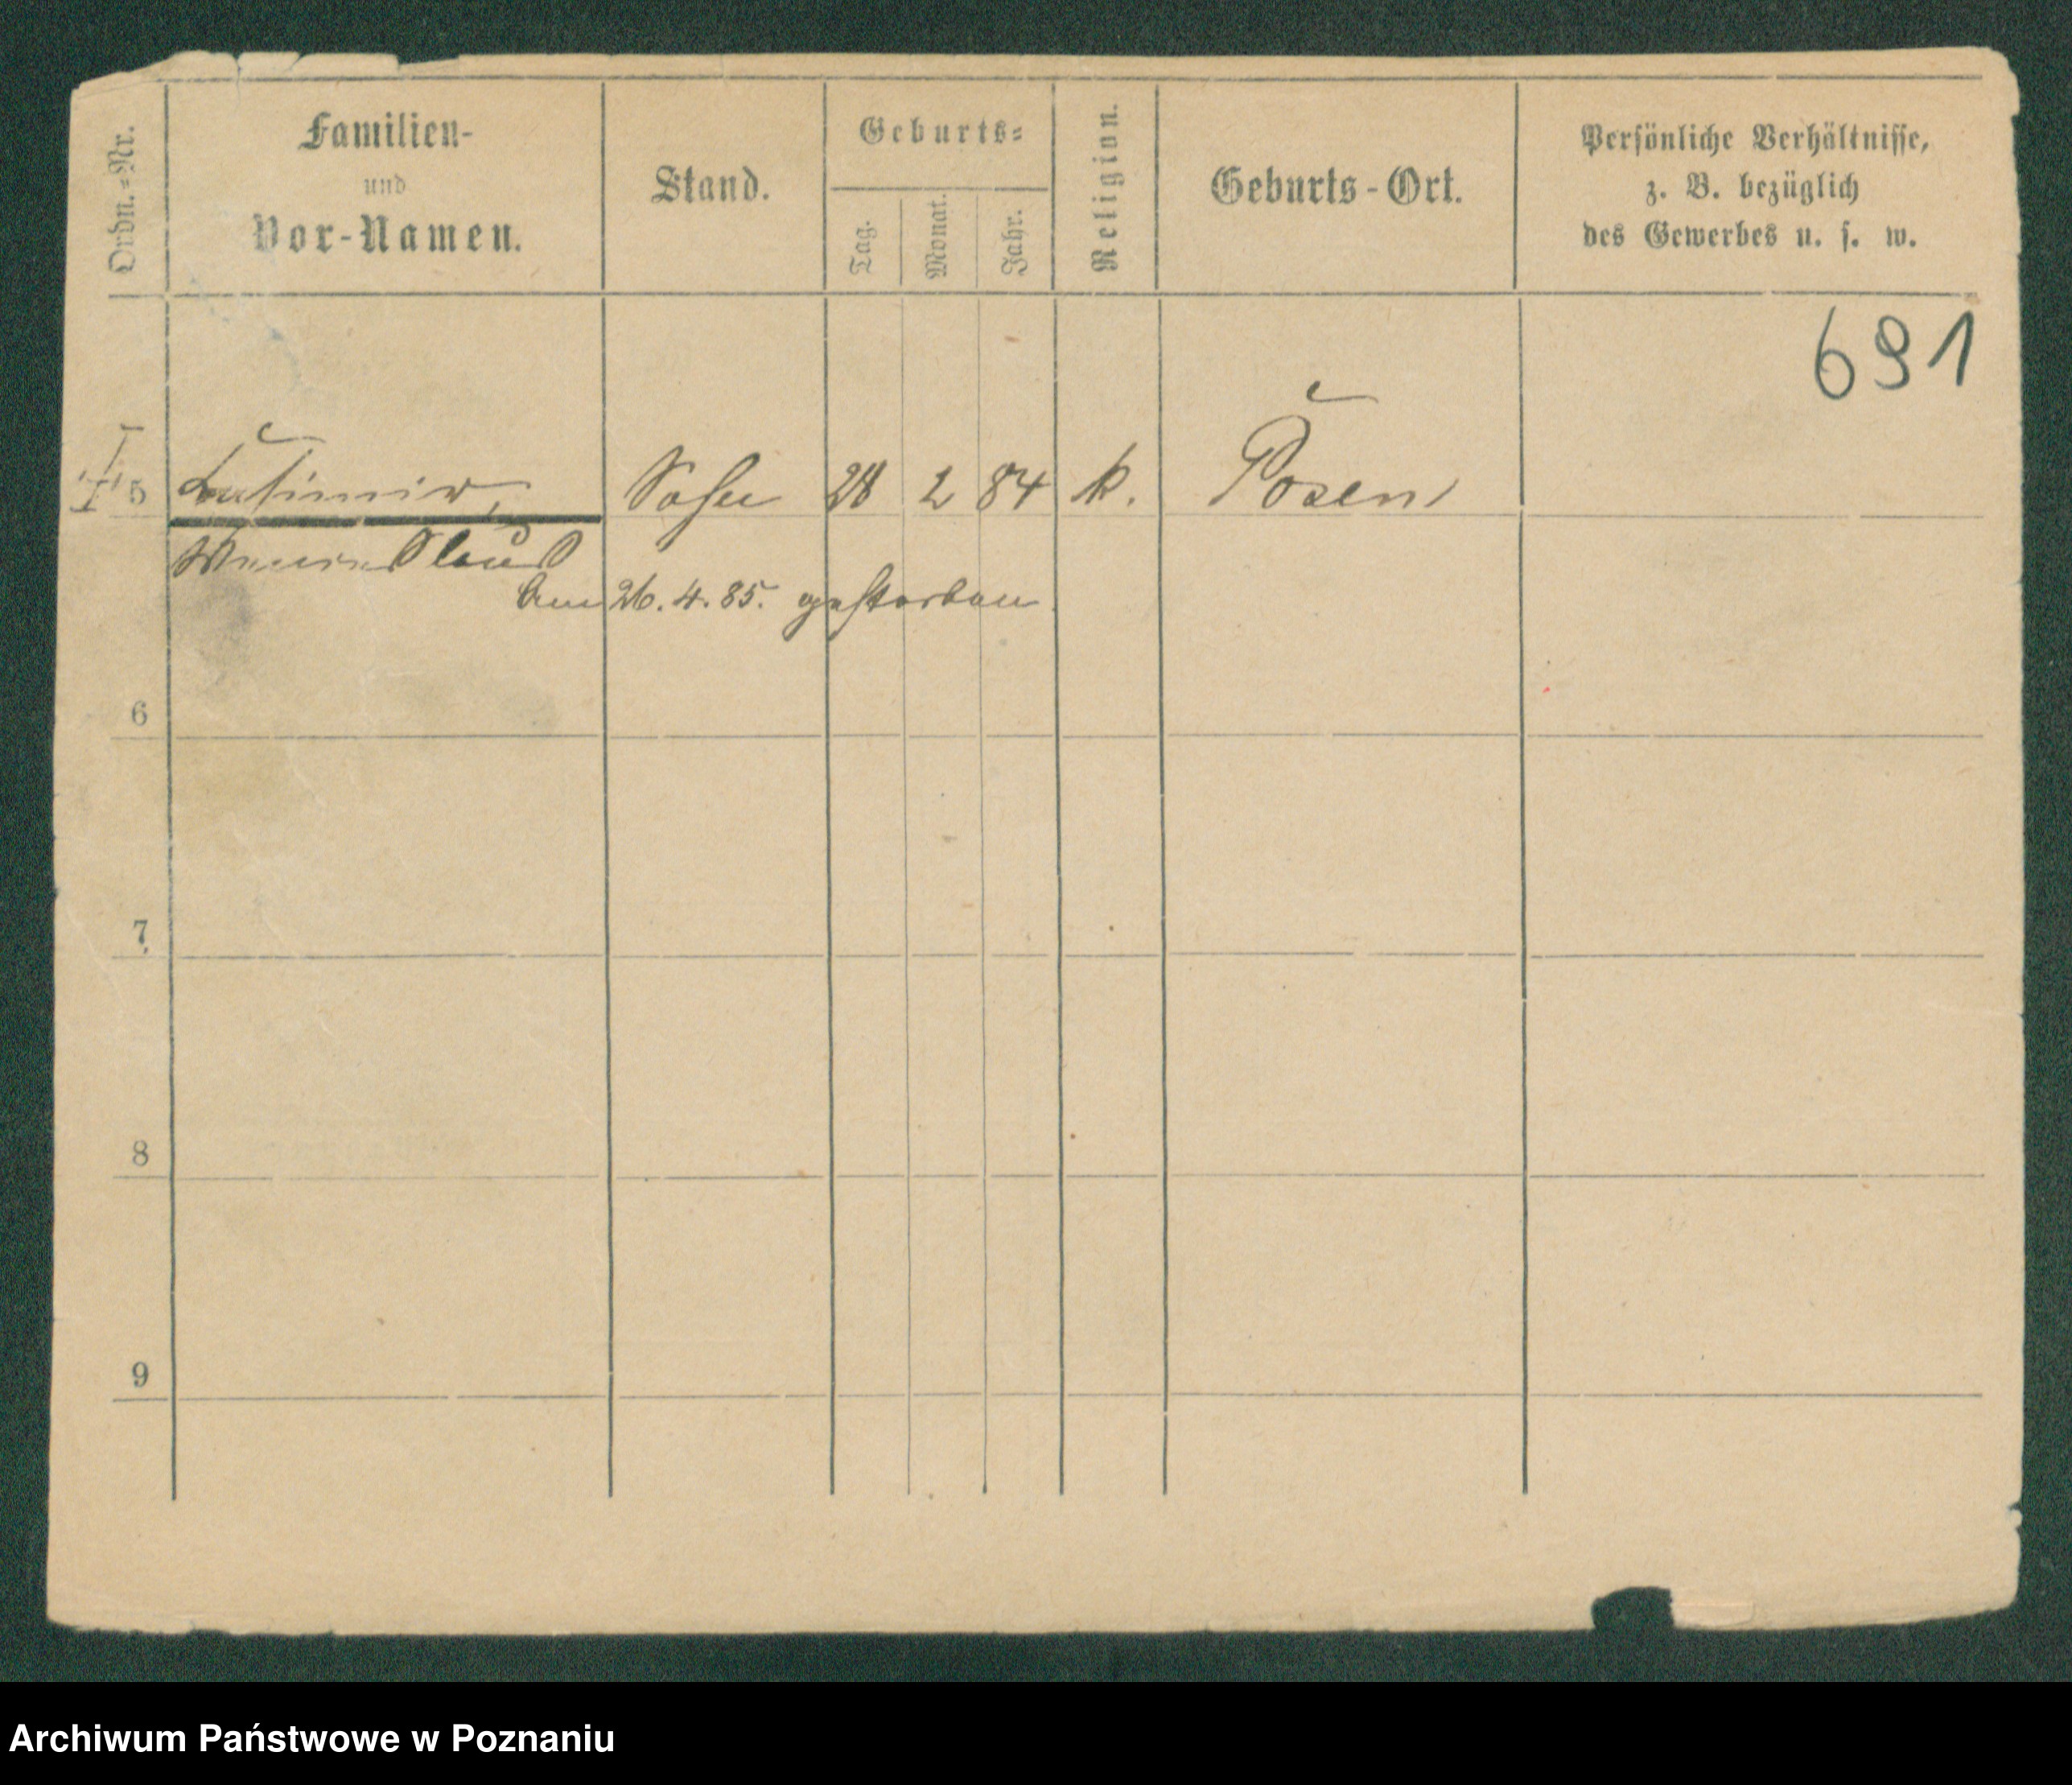 Ordn.=Nr.
Familien-
und
Vor-Namen.
Stand.
Geburts=
Tag.
Monat.
Jahr.
Religion.
Geburts-Ort.
Persönliche Verhältnisse,
z. B. bezüglich
des Gewerbes u. s. w.
691
5 Casimir, Sohn 28 2 84 k. Posen
am 26. 4. 85. gestorben
6
7
8
9
Archiwum Państwowe w Poznaniu